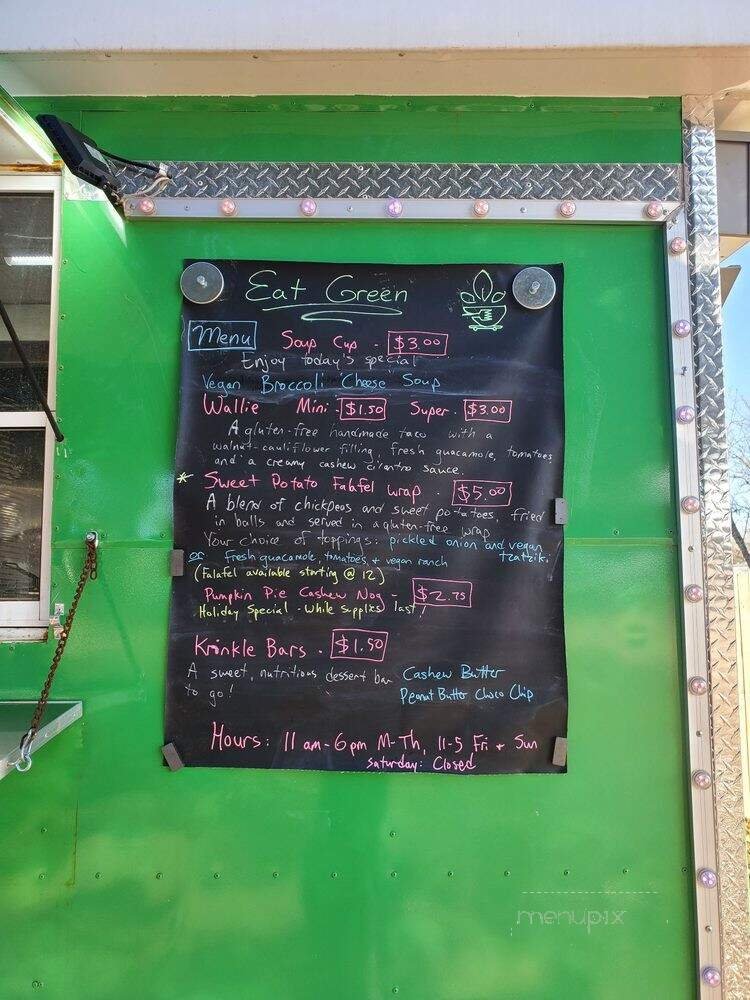 Eat Green
Menu Soup Cup - $3.00
Enjoy today's special
Vegan Broccoli "Cheese" Soup
Wallie Mini - $1.50 Super - $3.00
A gluten-free handmade taco with a
walnut-cauliflower filling, fresh guacamole, tomatoes,
and a creamy cashew cilantro sauce.
* Sweet Potato Falafel Wrap - $5.00
A blend of chickpeas and sweet potatoes, fried
in balls and served in a gluten-free wrap
Your choice of toppings: pickled onion and vegan
tzatziki
or fresh guacamole, tomatoes, + vegan ranch
(Falafel available starting @ 12)
Pumpkin Pie Cashew Nog - $2.75
Holiday Special - While Supplies last!
Krinkle Bars - $1.50
A sweet, nutritious dessert bar Cashew Butter
to go! Peanut Butter Choco Chip
Hours: 11 am-6pm M-Th, 11-5 Fri + Sun
Saturday: Closed
menupix